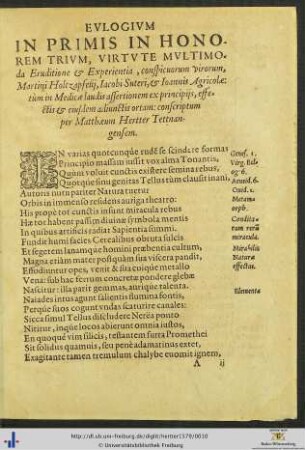 EVLOGIVM
IN PRIMIS IN HONO-
REM TRIVM, VIRTVTE MVLTIMO-
da Eruditione & Experientia, conspicuorum virorum,
Martini Holtzapfelij, Iacobi Suteri, & Ioannis Agricolæ:
tum in Medicæ laudis assertionem ex principijs, effe-
ctis & eiusdem adiunctis ortam: conscriptum
per Matthæum Hertter Tettnan-
gensem.
IN varias quotcunque rudē se scindere formas
Principio massam iussit vox alma Tonantis,
Quint voluit cunctis existere semina rebus,
Quotque sinu genitas Tellus tùm clausit inani,
Autoris nutu pariter Natura tuetur
Orbis in immenso residens auriga theatro:
His propè tot cunctis insunt miracula rebus
Hæ tot habent passim diuinæ symbola mentis
In quibus artificis radiat Sapientia summi.
Fundit humi facies Cerealibus obsita sulcis
Et segetem latamque homini præbentia cultum,
Magna etiàm mater postquàm sua viscera pandit,
Effodiuntur opes, venit & sua cuique metallo
Vena: sub hac ferrum concretæ pondere glebæ
Nascitur: illa parit gemmas, aurique talenta.
Naiades intus agunt salientis flumina fontis,
Perque suos cogunt vndas scaturire canales:
Sicca simul Tellus discludere Nerēa ponto
Nititur, inque locos abierunt omnia iustos,
En quoque vim silicis, testantem furta Promethei
Sit solidus quamuis, seu penè adamatinus extet,
Exagitante tamen tremulum chalybe euomit ignem,
A ij
Genes. 1.
Virg. Eclog. 6.
Aeneid. 6.
Ouid. 1.
Metamorph.
Conditarum rerū
miranda.
Mirabilis
Naturæ
effectus.
Elementa
http://dl.ub.uni-freiburg.de/diglit/hertter1579/0010
© Universitätsbibliothek Freiburg
Baden-Württemberg